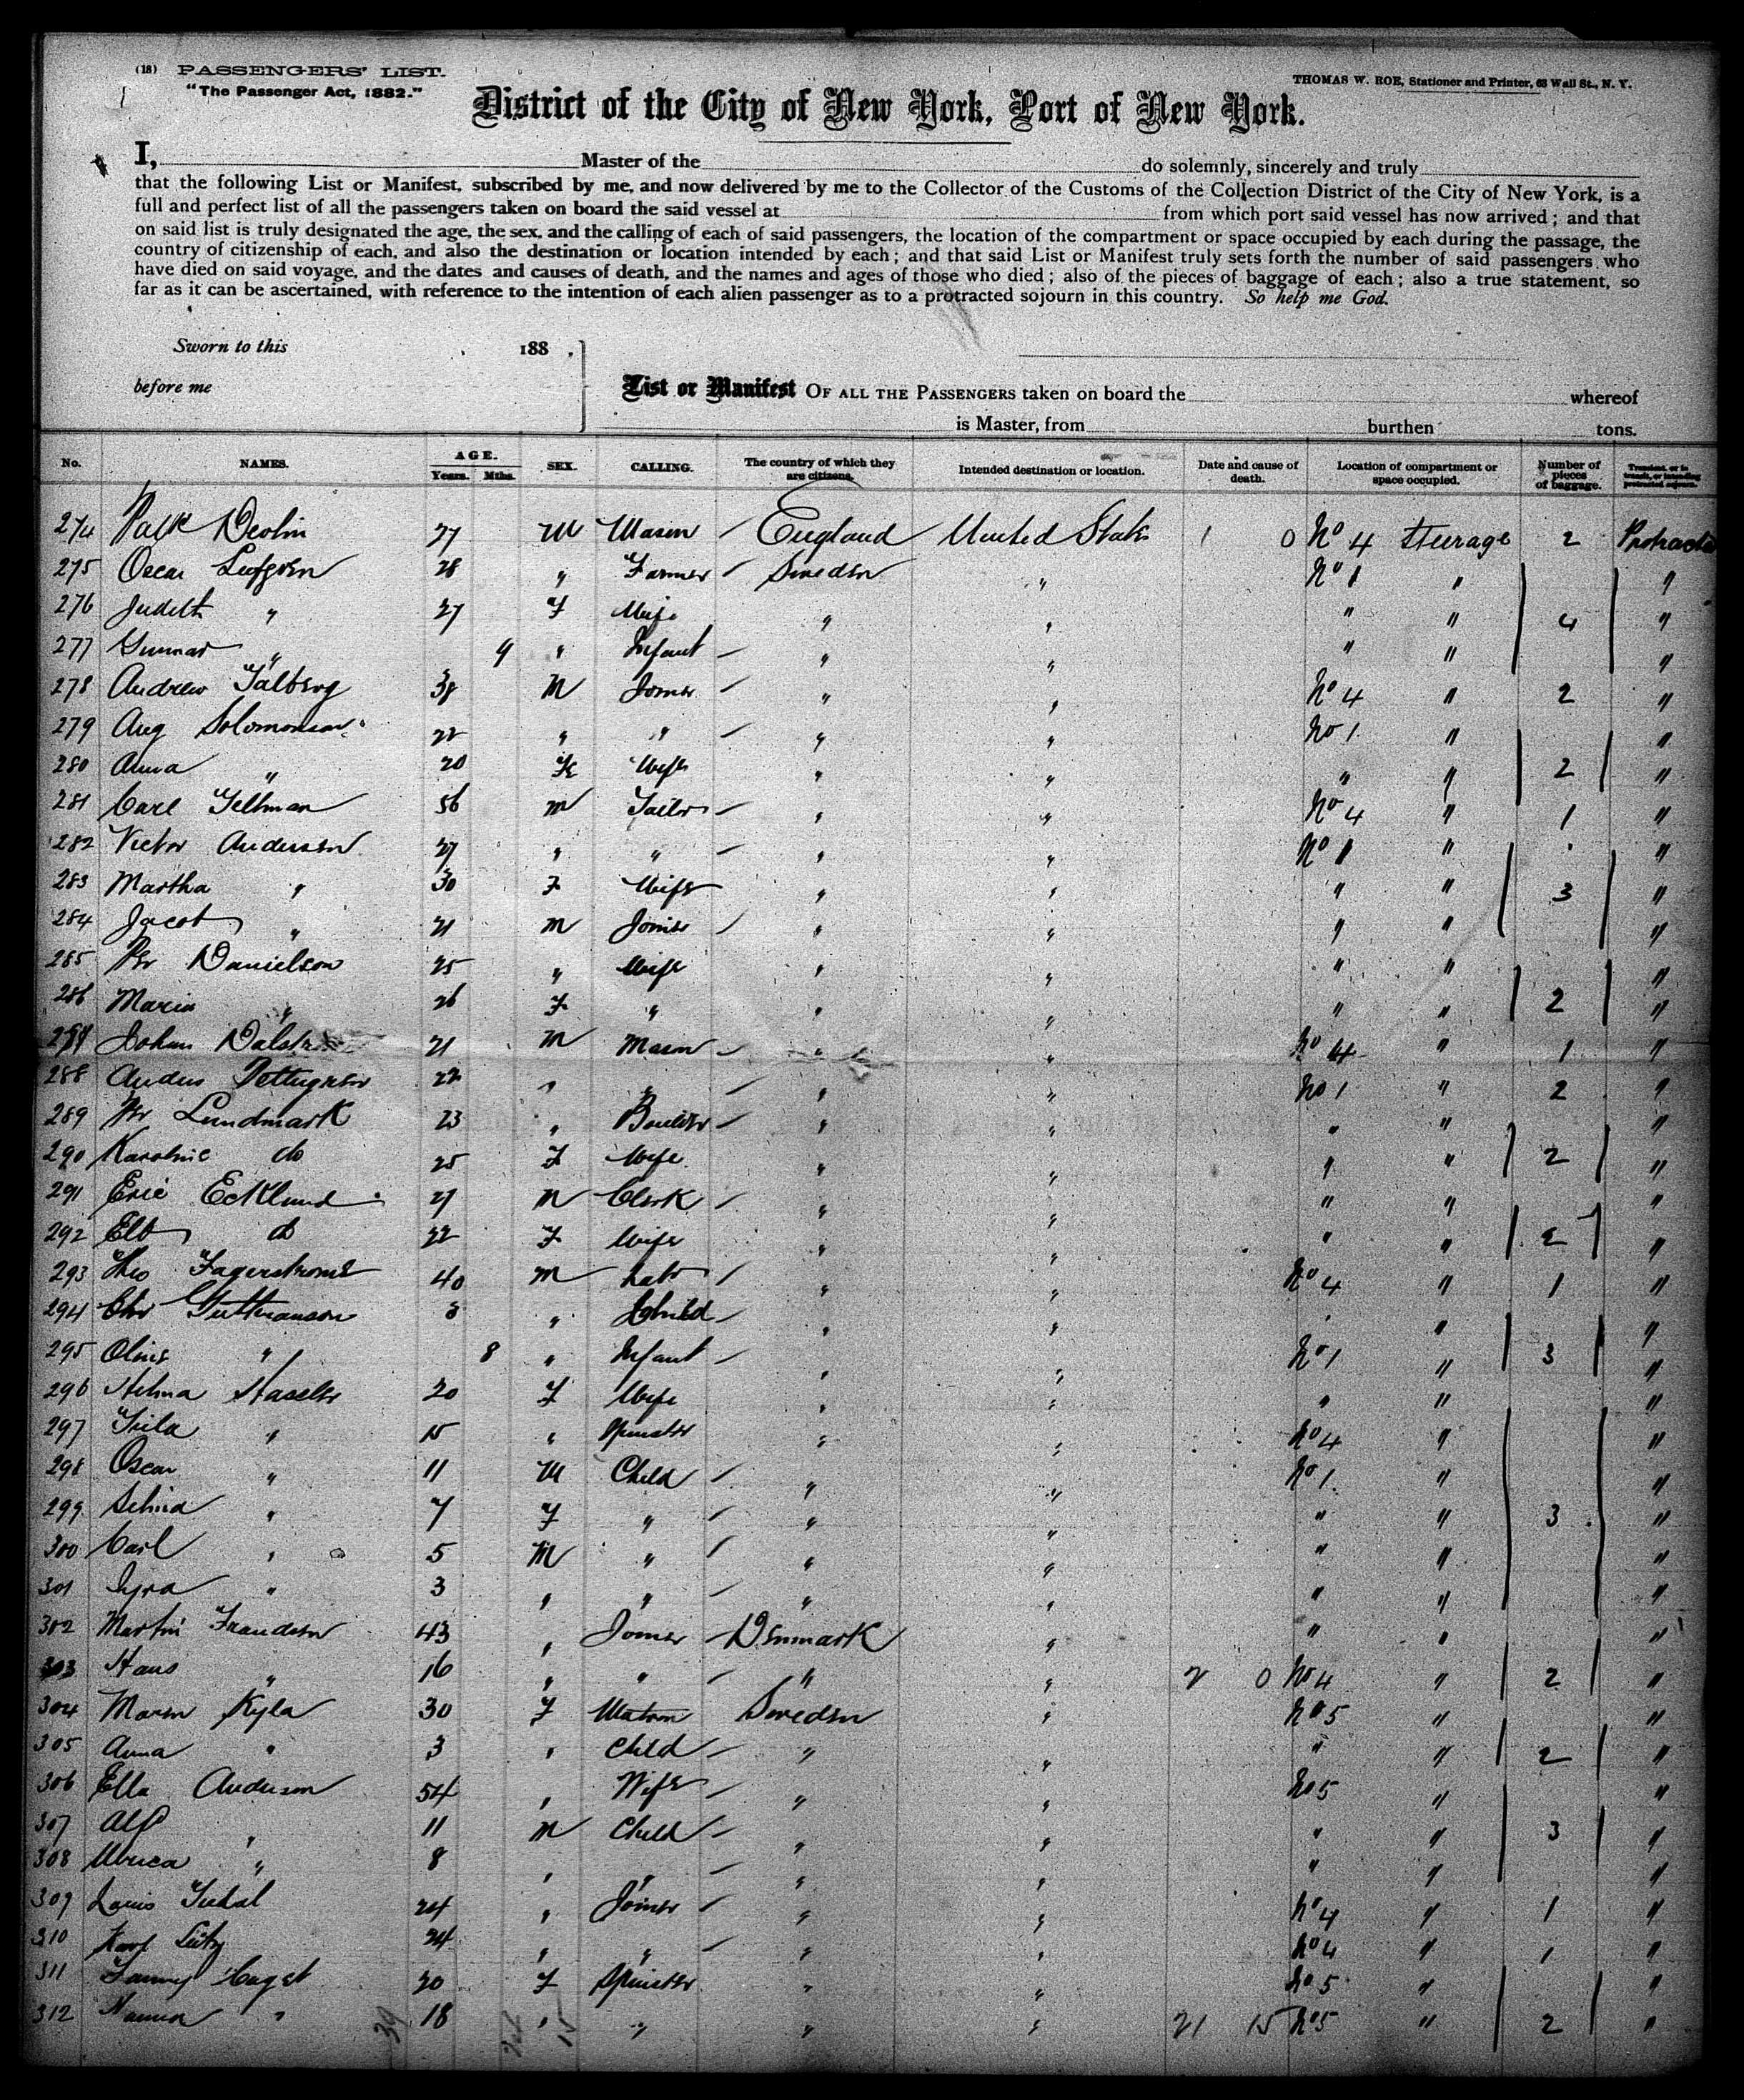 (18) PASSENGERS' LIST.
"The Passenger Act, 1882."
THOMAS W. ROE, Stationer and Printer, 63 Wall St., N. Y.
District of the City of New York, Port of New York.
I, Master of the do solemnly, sincerely and truly
that the following List or Manifest, subscribed by me, and now delivered by me to the Collector of the Customs of the Collection District of the City of New York, is a
full and perfect list of all the passengers taken on board the said vessel at from which port said vessel has now arrived; and that
on said list is truly designated the age, the sex, and the calling of each of said passengers, the location of the compartment or space occupied by each during the passage, the
country of citizenship of each, and also the destination or location intended by each; and that said List or Manifest truly sets forth the number of said passengers who
have died on said voyage, and the dates and causes of death, and the names and ages of those who died; also of the pieces of baggage of each; also a true statement, so
far as it can be ascertained, with reference to the intention of each alien passenger as to a protracted sojourn in this country. So help me God.
Sworn to this 188 .
before me
List or Manifest OF ALL THE PASSENGERS taken on board the whereof
is Master, from burthen tons.
No. NAMES. AGE. Years. Mths. SEX. CALLING. The country of which they are citizens. Intended destination or location. Date and cause of death. Location of compartment or space occupied. Number of pieces of baggage. Transient, or in transit, or intending protracted sojourn.
274 Devlin 27 M Mason England United States 1 0 No 4 Steerage 2
275 Oscar Lofgren 28 " Farmer Sweden " No 1 " "
276 Judith " 27 F Wife " " " " 4 "
277 Gunnar " 9 " Infant " " " " "
278 Andrew 38 M Joiner " " No 4 " 2 "
279 Aug Solomonson 22 " " " " No 1 " "
280 Anna " 20 Fe Wife " " " " 2 "
281 Carl 56 M Tailor " " No 4 " 1 "
282 Victor Anderson 27 " " " " No 1 " "
283 Martha " 30 F Wife " " " " 3 "
284 Jacob " 21 M Joiner " " " " "
285 Per Danielson 25 " Wife " " " " "
286 Maria " 26 F " " " " " 2 "
287 Johan 21 M Mason " " No 4 " 1 "
288 22 " " " " No 1 " 2 "
289 Per Lundmark 23 " " " " " "
290 Karoline do 25 F Wife " " " " 2 "
291 Eric Ecklund 27 M Clerk " " " " "
292 do 22 F Wife " " " " 2 "
293 Theo 40 M Labr " " No 4 " 1 "
294 " Child " " " "
295 " 8 " Infant " " No 1 " 3 "
296 20 F Wife " " " " "
297 " 15 " Spinster " " No 4 " "
298 Oscar " 11 M Child " " No 1 " "
299 " 7 F " " " " " 3 "
300 Carl " 5 M " " " " " "
301 " 3 " " " " " " "
302 Martin Frandsen 43 " Joiner Denmark " " " "
303 Hans " 16 " " " " 2 0 No 4 " 2 "
304 Maren Kyla 30 F Matron Sweden " No 5 " "
305 Anna " 3 " Child " " " " 2 "
306 Ella Anderson 54 " Wife " " No 5 " "
307 Alf " 11 M Child " " " " 3 "
308 " 8 " " " " " " "
309 Louis 24 " Joiner " " No 4 " 1 "
310 Karl 24 " " " " No 4 " 1 "
311 Fanny 20 F Spinster " " No 5 " "
312 " 18 " " " " 21 15 No 5 " 2 "
39